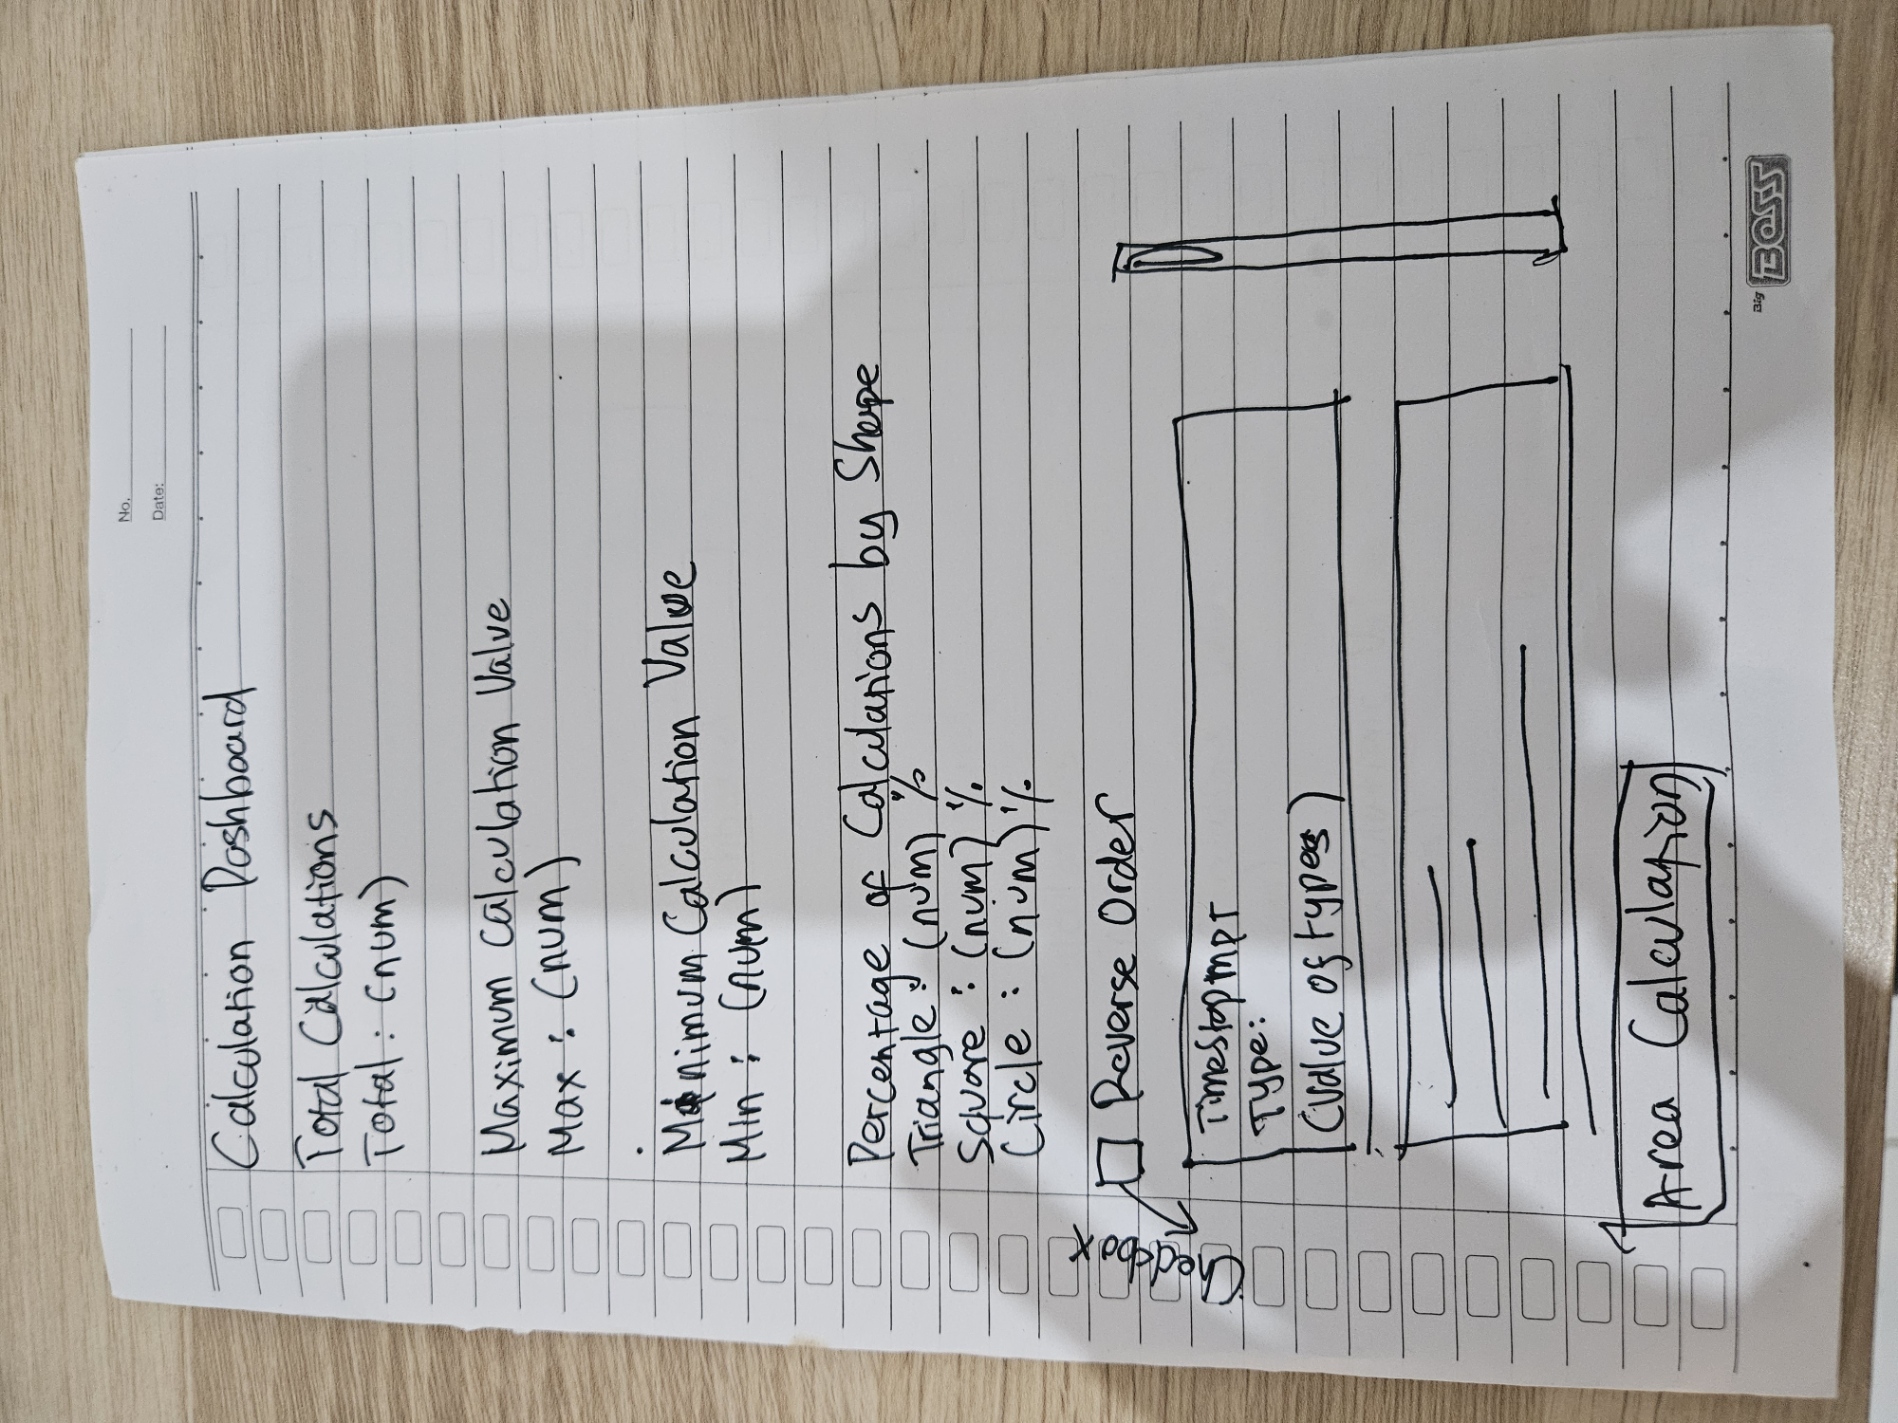 No.
Date:
Calculation Dashboard
Total Calculations
Total : (num)
Maximum Calculation Value
Max : (num)
Minimum Calculation Value
Min : (num)
Percentage of Calculations by Shape
Triangle : (num) %
Square : (num) %
Circle : (num) %
Checkbox
Reverse Order
Timestapmpt
Type:
(value of types)
Area Calculation
Big BOSS